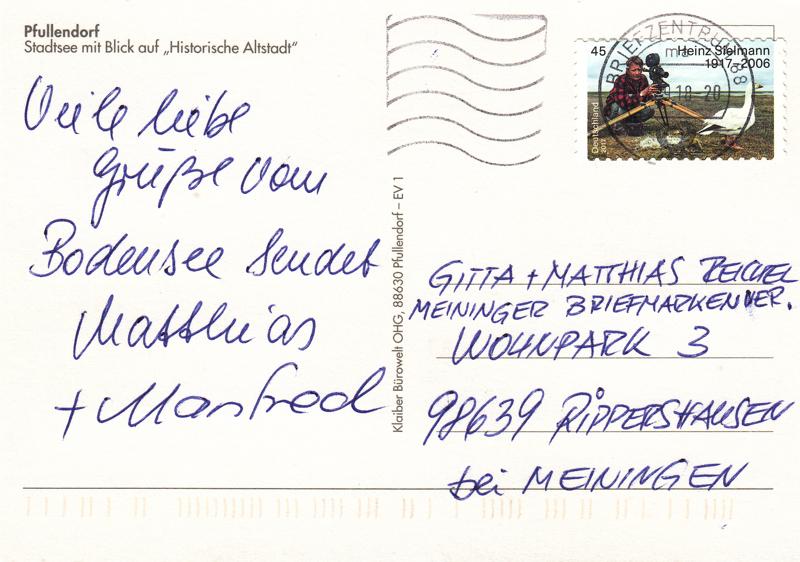 Pfullendorf
Stadtsee mit Blick auf „Historische Altstadt“
Viele liebe
Grüße vom
Bodensee sendet
Matthias
+ Manfred
Klaiber Bürowelt OHG, 88630 Pfullendorf – EV 1
BRIEFZENTRUM 88
45
Heinz Sielmann
1917–2006
Deutschland
2017
GITTA + MATTHIAS REICHEL
MEININGER BRIEFMARKENVER.
WOHNPARK 3
98639 RIPPERSHAUSEN
bei MEININGEN